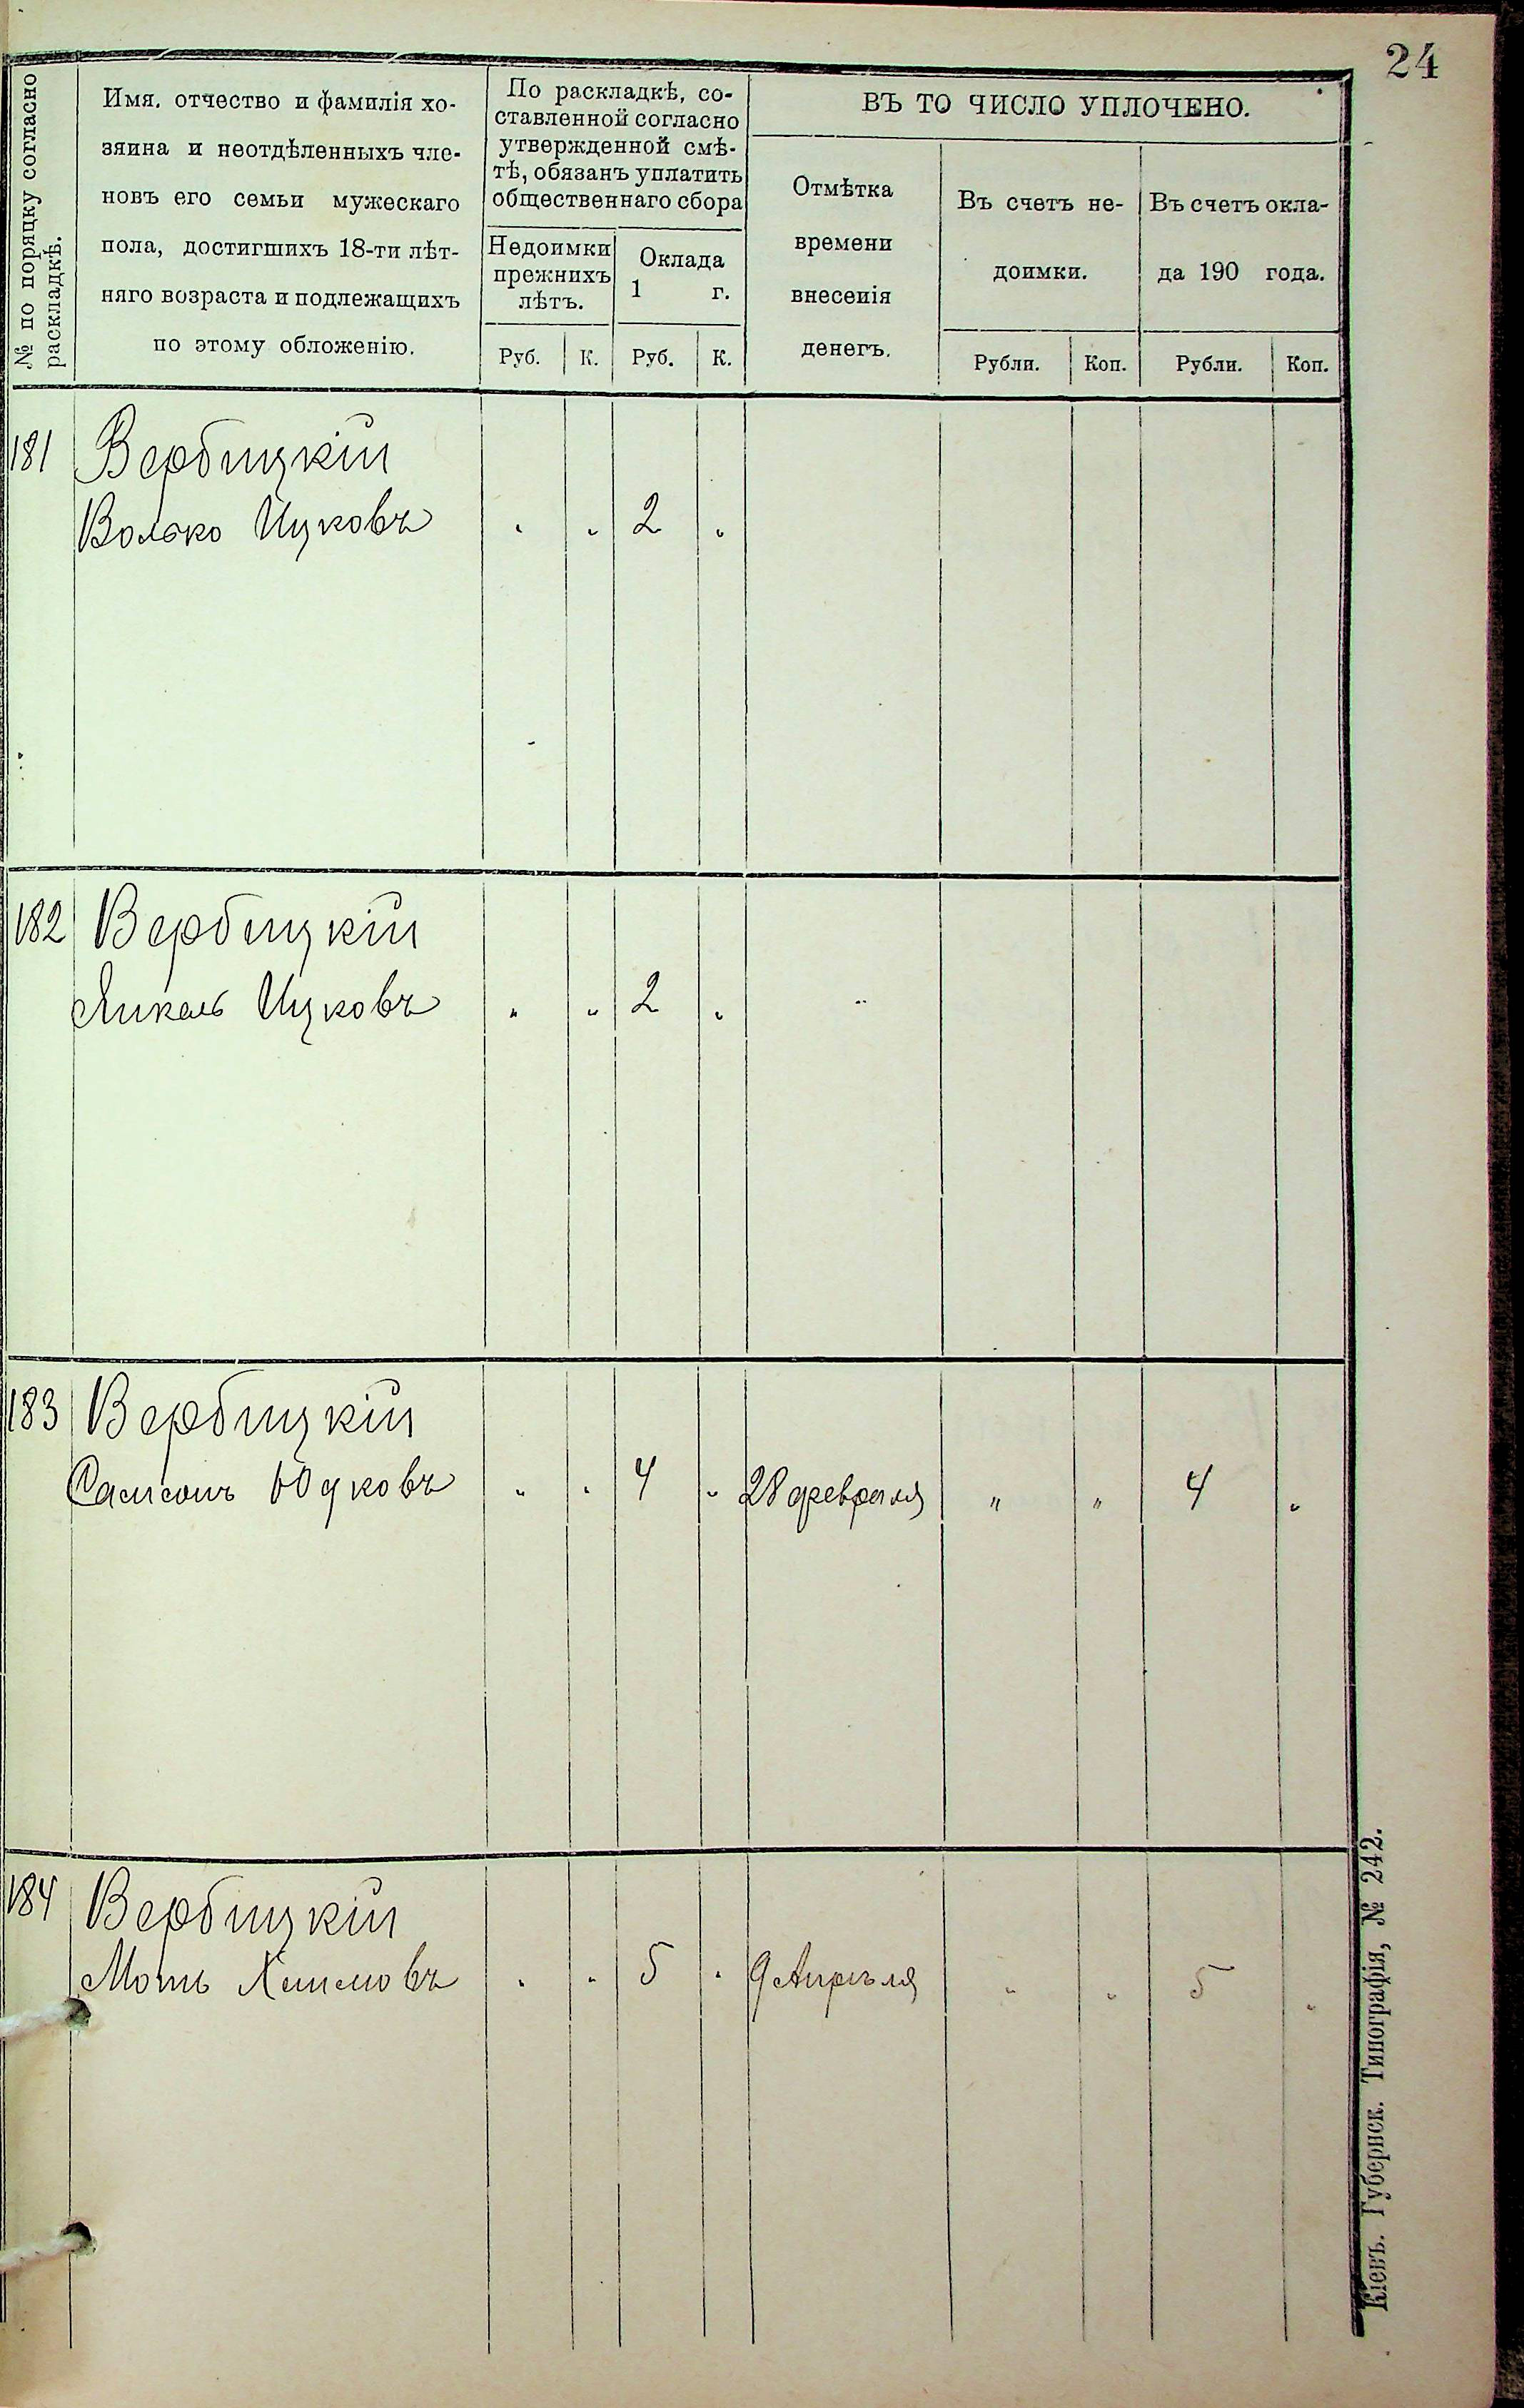 24
№ по порядку согласно
раскладкѣ.
Имя, отчество и фамилія хо-
зяина и неотдѣленныхъ чле-
новъ его семьи мужескаго
пола, достигшихъ 18-ти лѣт-
няго возраста и подлежащихъ
по этому обложенію.
По раскладкѣ, со-
ставленной согласно
утвержденной смѣ-
тѣ, обязанъ уплатить
общественнаго сбора
Недоимки
прежнихъ
лѣтъ.
Оклада
1 г.
Руб. К. Руб. К.
ВЪ ТО ЧИСЛО УПЛОЧЕНО.
Отмѣтка
времени
внесенія
денегъ.
Въ счетъ не-
доимки.
Въ счетъ окла-
да 190 года.
Рубли. Коп. Рубли. Коп.
181 Вербицкій
Волько Ицковъ " " 2 "
182 Вербицкій
Янкель Ицковъ " " 2 "
183 Вербицкій
Самсонъ Юдковъ " " 4 " 28 февраля " " 4 "
184 Вербицкій
Моть " " 5 " 9 Апрѣля " " 5 "
Кіевъ. Губернск. Типографія, № 242.